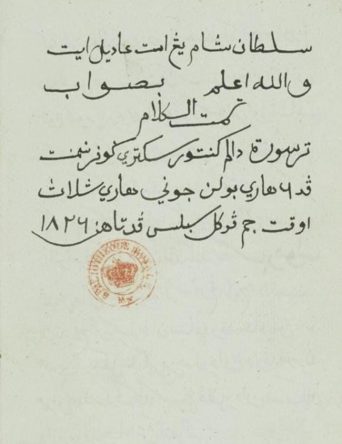 سلطان شام يڠ امت عاديل ايت
والله اعلم بصواب
تمت الكلام
ترسورة دالم كنتور سكتري كوفرنمنت
ڤد ٦ هاري بولن جوني هاري ثلاث
اوقت جم ڤوكل سبلس ڤد تاهن ١٨٢٦